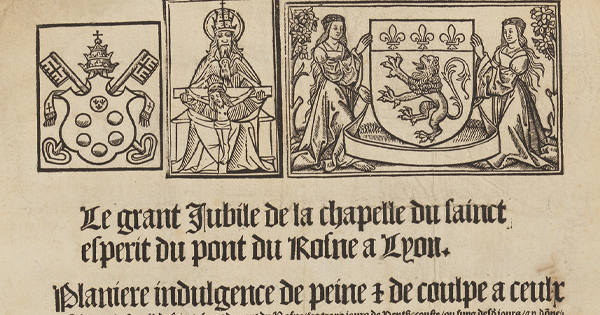 Le grant Jubile de la chapelle du sainct
esperit du pont du Rosne a Lyon.
Planiere indulgence de peine ⁊ de coulpe a ceulx